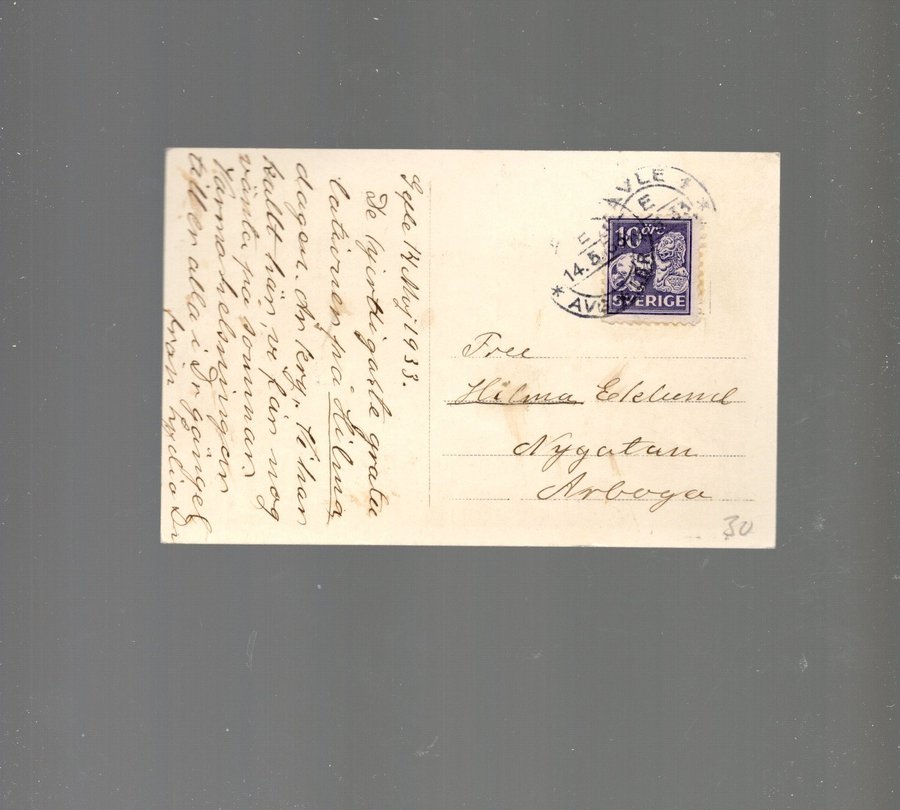 Gefle 14 Maj 1933.
De hjertligaste gratu
lationer på Hilma
dagen. Är kry. Vi har
kallt här, vi får nog
vänta på sommar.
Varma helsningar
till en alla i
från
GÄVLE 1
14.5.
10 öre
SVERIGE
Hilma Eklund
Nygatan
Arboga
30